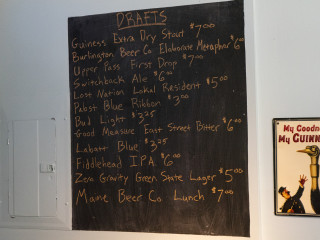 DRAFTS
Guiness Extra Dry Stout $7.00
Burlington Beer Co Elaborate Metaphor $6.00
Upper Pass First Drop $7.00
Switchback Ale $6.00
Lost Nation Lokal Resident $5.00
Pabst Blue Ribbon $3.00
Bud Light $3.25
Good Measure East Street Bitter $6.00
Labatt Blue $3.25
Fiddlehead IPA $6.00
Zero Gravity Green State Lager $5.00
Maine Beer Co Lunch $7.00
My Goodn
My GUINN